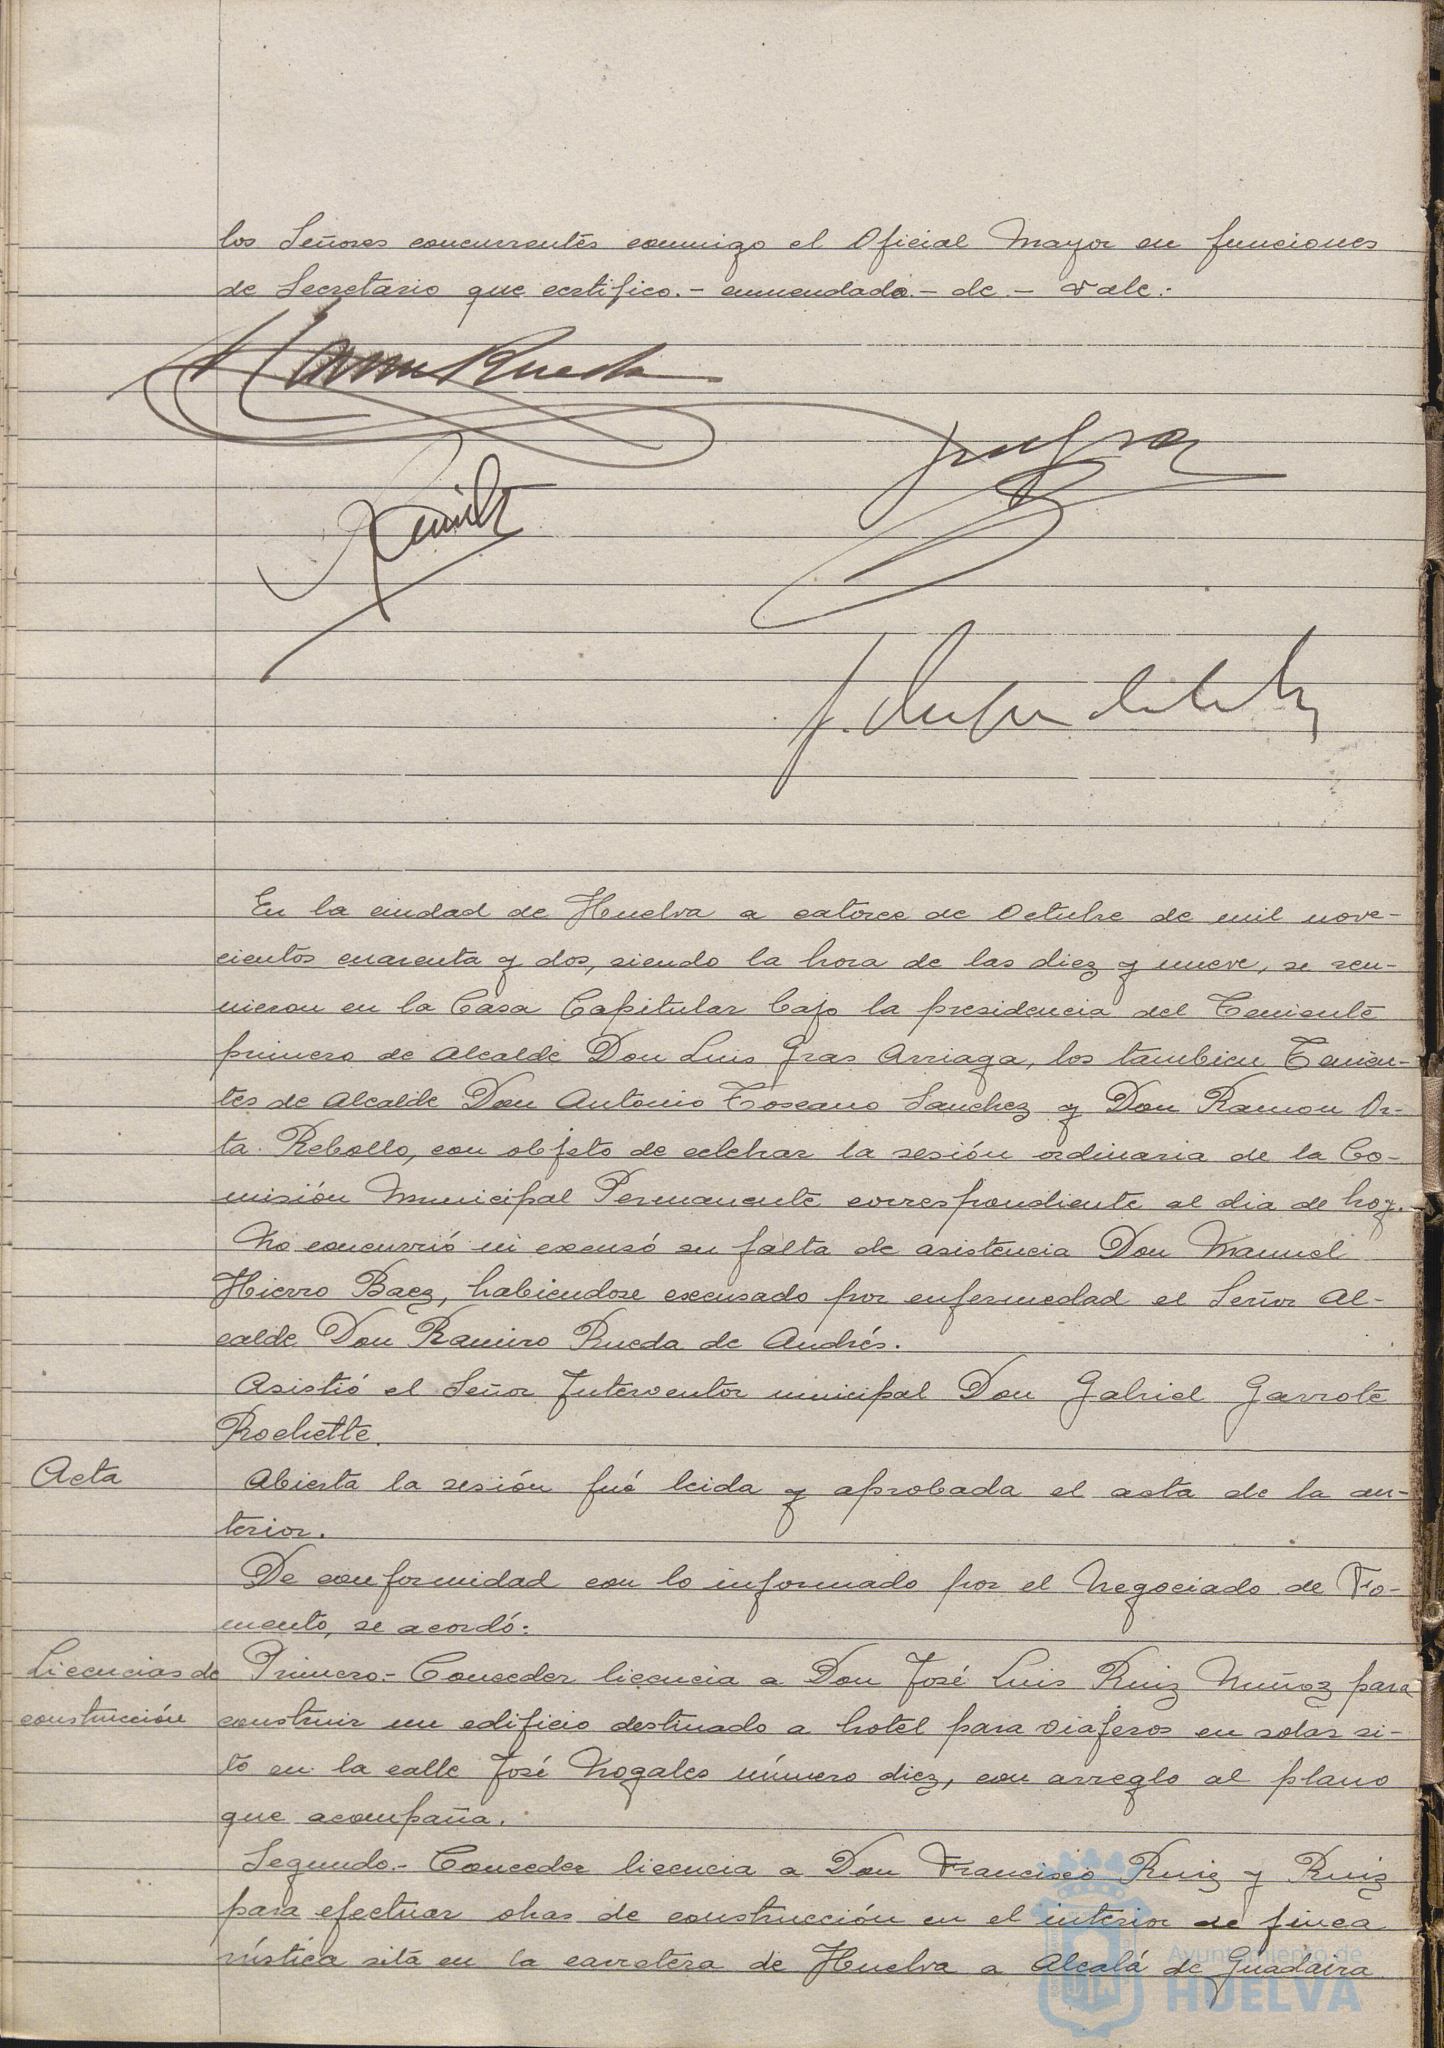 los Señores concurrentes conmigo el Oficial Mayor en funciones
de Secretario que certifico.- enmendado.- de.- vale.-
En la ciudad de Huelva a catorce de Octubre de mil nove-
cientos cuarenta y dos, siendo la hora de las diez y nueve, se reu-
nieron en la Casa Capitular bajo la presidencia del Teniente
primero de Alcalde Don Luis Gras Arriaga, los tambien Tenien-
tes de Alcalde Don Antonio Toscano Sanchez y Don Ramon Or-
ta Rebollo, con objeto de celebrar la sesión ordinaria de la Co-
misión Municipal Permanente correspondiente al dia de hoy.
No concurrió ni excusó su falta de asistencia Don Manuel
Hierro Baez, habiendose excusado por enfermedad el Señor Al-
calde Don Ramiro Rueda de Andrés.
Asistió el Señor Interventor municipal Don Gabriel Garrote
Rochette.
Acta
Abierta la sesión fué leida y aprobada el acta de la an-
terior.
De conformidad con lo informado por el Negociado de Fo-
mento, se acordó:
Licencias de construcción
Primero.- Conceder licencia a Don José Luis Ruiz Muñoz para
construir un edificio destinado a hotel para viajeros en solar si-
to en la calle José Nogales número diez, con arreglo al plano
que acompaña.
Segundo.- Conceder licencia a Don Francisco Ruiz y Ruiz
para efectuar obras de construcción en el interior de finca
rústica sitá en la carretera de Huelva a Alcalá de Guadaira
Ayuntamiento de
HUELVA